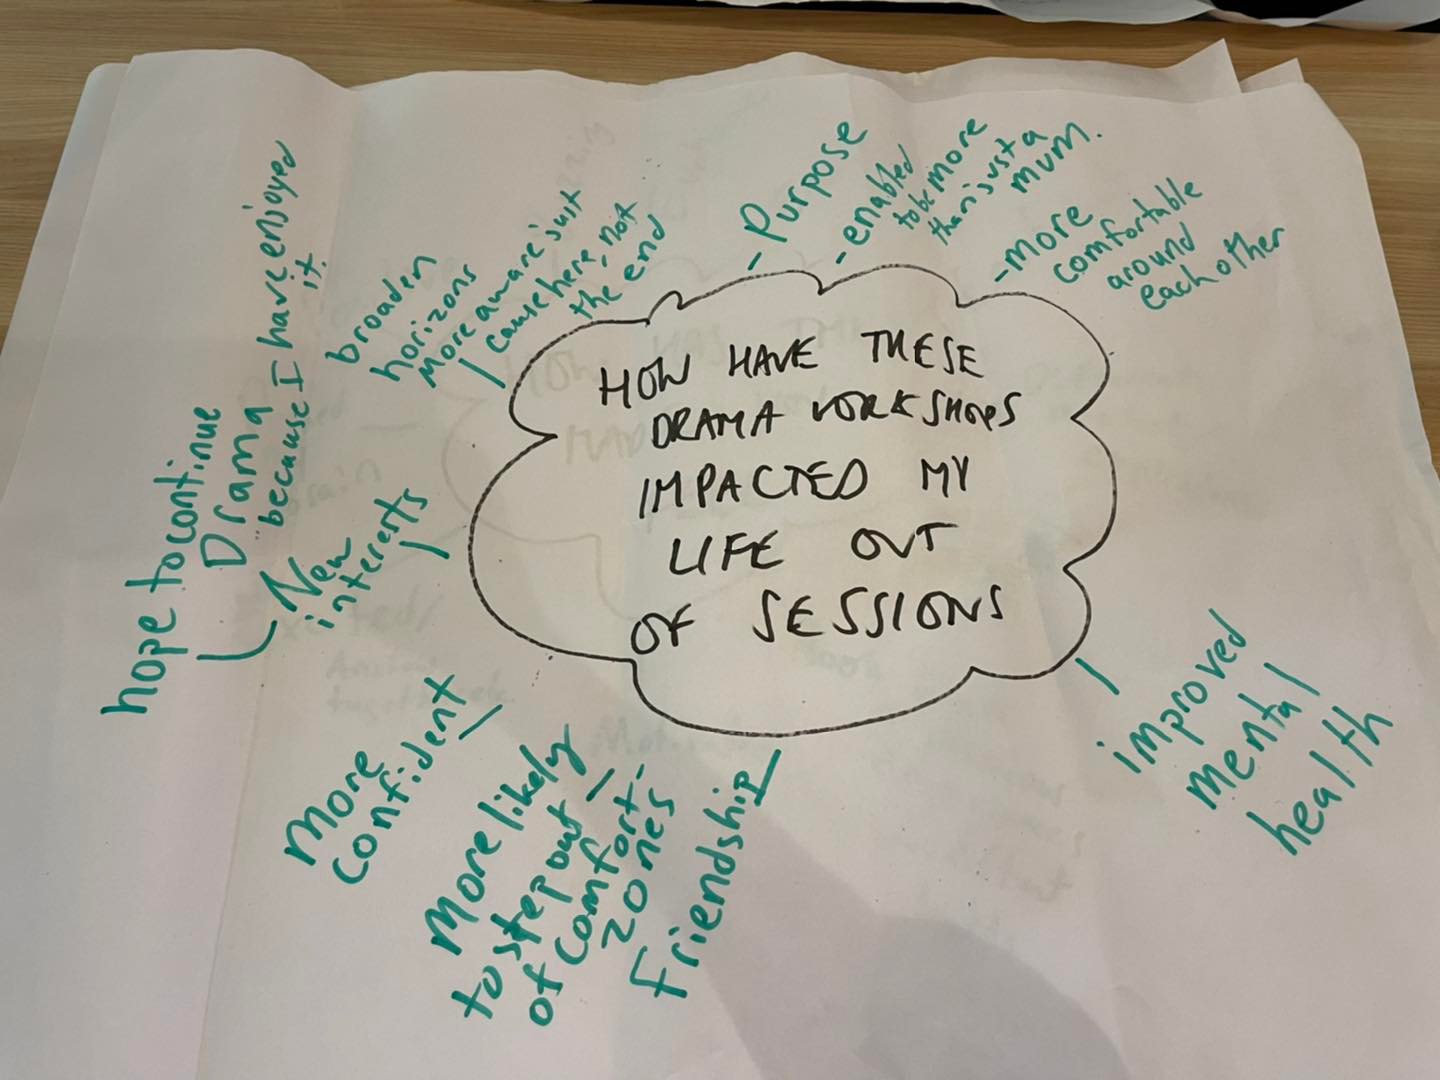 HOW HAVE THESE
DRAMA WORKSHOPS
IMPACTED MY
LIFE OUT
OF SESSIONS
- Purpose
- enabled
to be more
than just a
mum.
- more
comfortable
around
each other
improved
mental
health
Friendship
More likely
to step out
of comfort-
zones
More
confident
New
interents
hope to continue
Drama
because I have enjoyed
it.
broaden
horizons
more aware just
cause here, not
the end